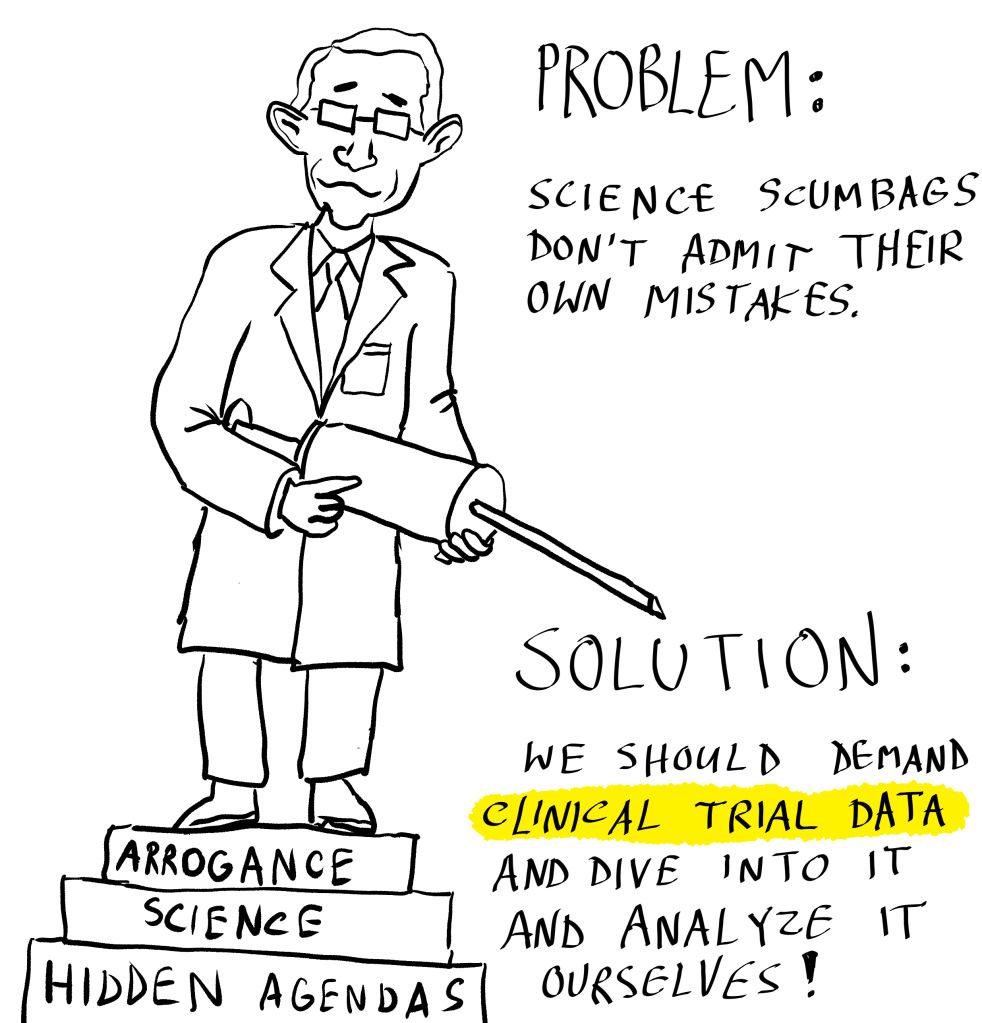 PROBLEM:
SCIENCE SCUMBAGS
DON'T ADMIT THEIR
OWN MISTAKES.
SOLUTION:
WE SHOULD DEMAND
CLINICAL TRIAL DATA
AND DIVE INTO IT
AND ANALYZE IT
OURSELVES!
ARROGANCE
SCIENCE
HIDDEN AGENDAS